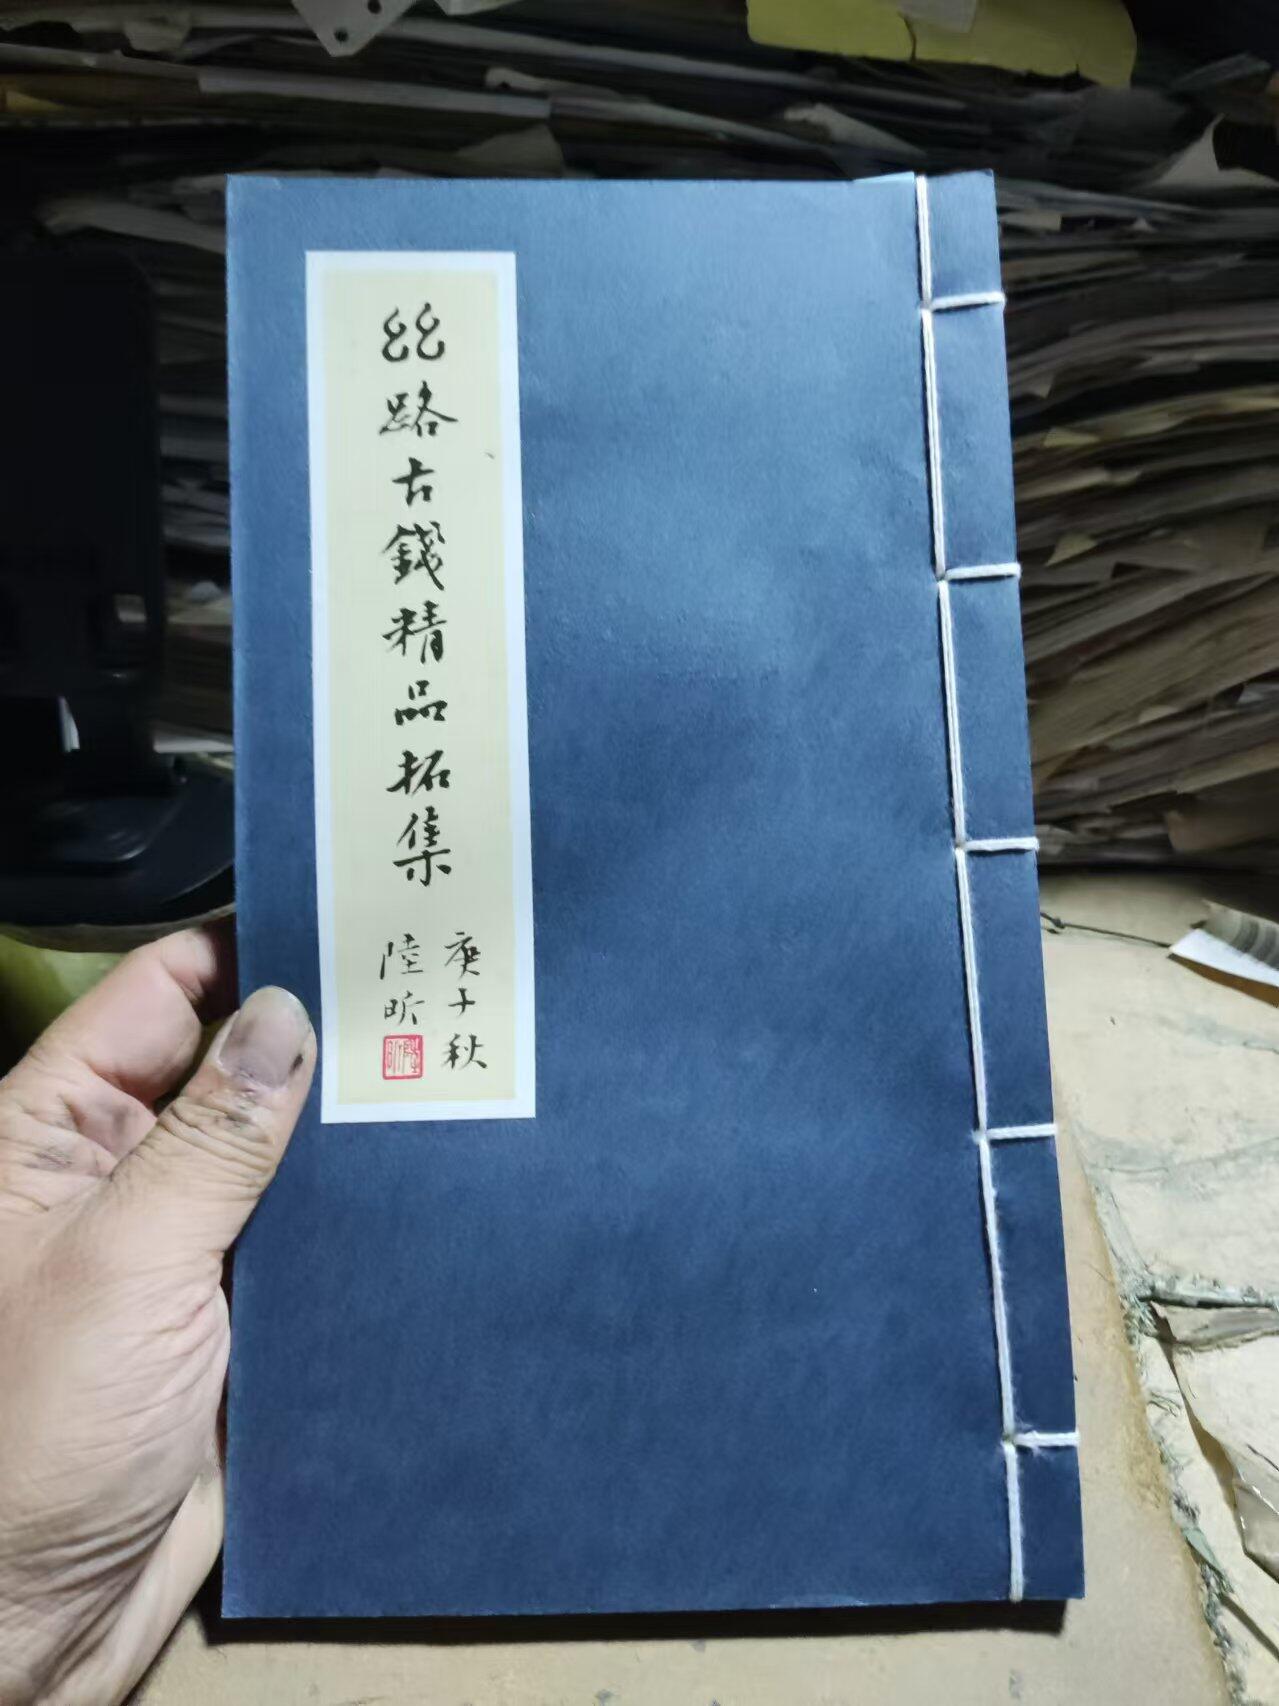 絲路古錢精品拓集
庚子秋
陸昕